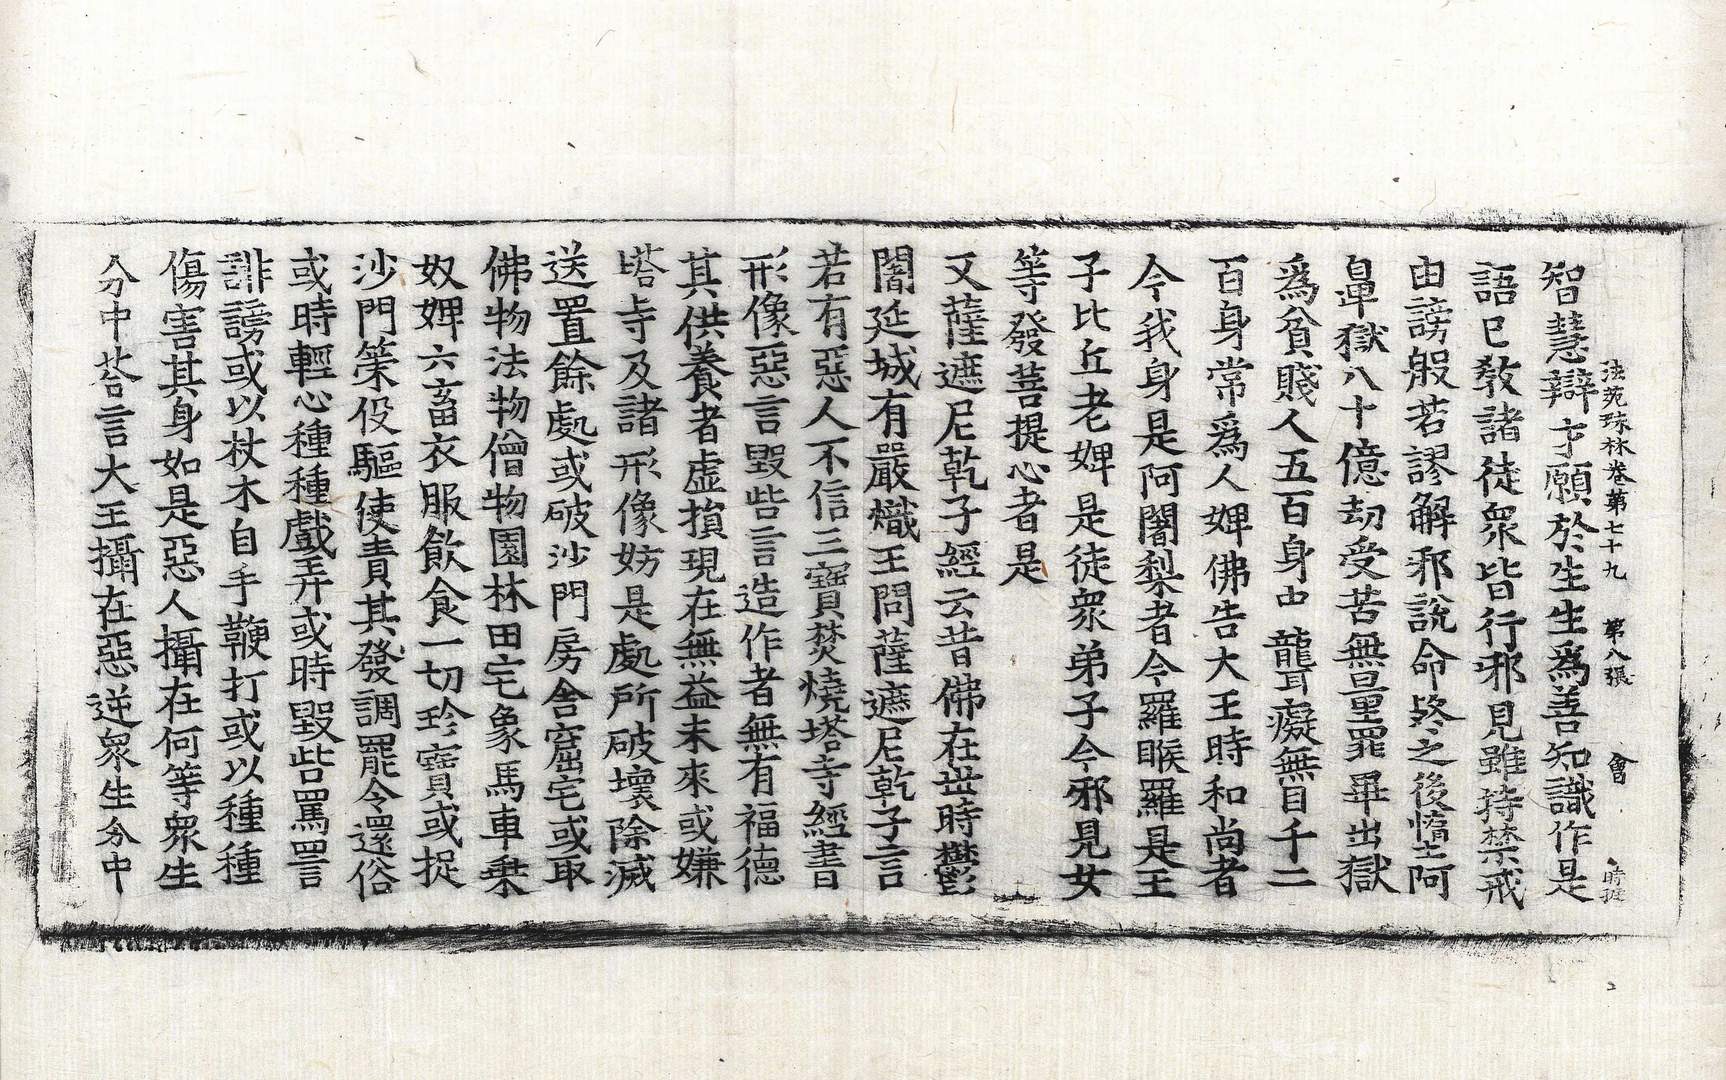 法苑珠林卷第七十九　第八張　會
智慧辯才願於生生爲善知識作是
語已教諸徒衆皆行邪見雖持禁戒
由謗般若謬解邪說命終之後墮阿
鼻獄八十億劫受苦無量罪畢出獄
爲貧賤人五百身中聾癡無目千二
百身常爲人婢佛告大王時和尚者
今我身是阿闍梨者今羅睺羅是王
子比丘老婢是徒衆弟子今邪見女
等發菩提心者是
又薩遮尼乾子經云昔佛在世時鬱
闍延城有嚴熾王問薩遮尼乾子言
若有惡人不信三寶焚燒塔寺經書
形像惡言毀呰言造作者無有福德
其供養者虛損現在無益未來或嫌
塔寺及諸形像妨是處所破壞除滅
送置餘處或破沙門房舍窟宅或取
佛物法物僧物園林田宅象馬車乗
奴婢六畜衣服飲食一切珍寶或捉
沙門策役驅使責其發調罷令還俗
或時輕心種種戲弄或時毀呰罵詈
誹謗或以杖木自手鞭打或以種種
傷害其身如是惡人攝在何等衆生
分中荅言大王攝在惡逆衆生分中